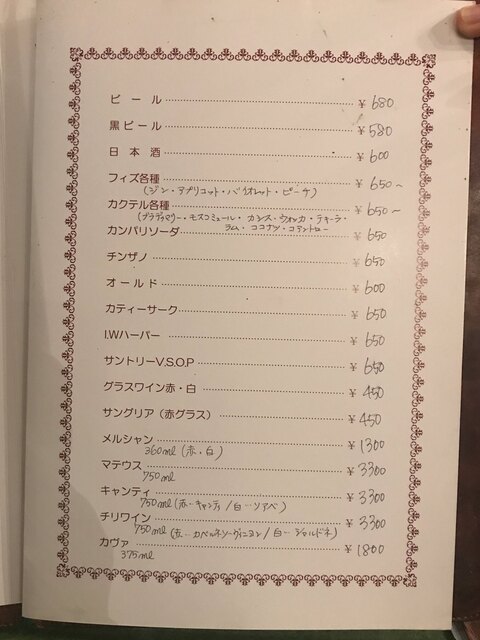 ビール ¥680
黒ビール ¥580
日本酒 ¥600
フィズ各種 ¥650〜
(ジン・アプリコット・バイオレット・ピーチ)
カクテル各種 ¥650〜
(ブラディマリー・モスコミュール・カシス・ウォッカ・テキーラ・
ラム・ココナツ・コアントロー
カンパリソーダ ¥650
チンザノ ¥650
オールド ¥600
カティーサーク ¥650
I.Wハーパー ¥650
サントリーV.S.O.P ¥650
グラスワイン赤・白 ¥450
サングリア(赤グラス) ¥450
メルシャン ¥1300
360ml (赤・白)
マテウス ¥3300
750ml
キャンティ ¥3300
750ml (赤‥キャンティ/白‥ソアベ)
チリワイン ¥3300
750ml (赤‥カベルネソーヴィニヨン/白‥シャルドネ)
カヴァ ¥1800
375ml